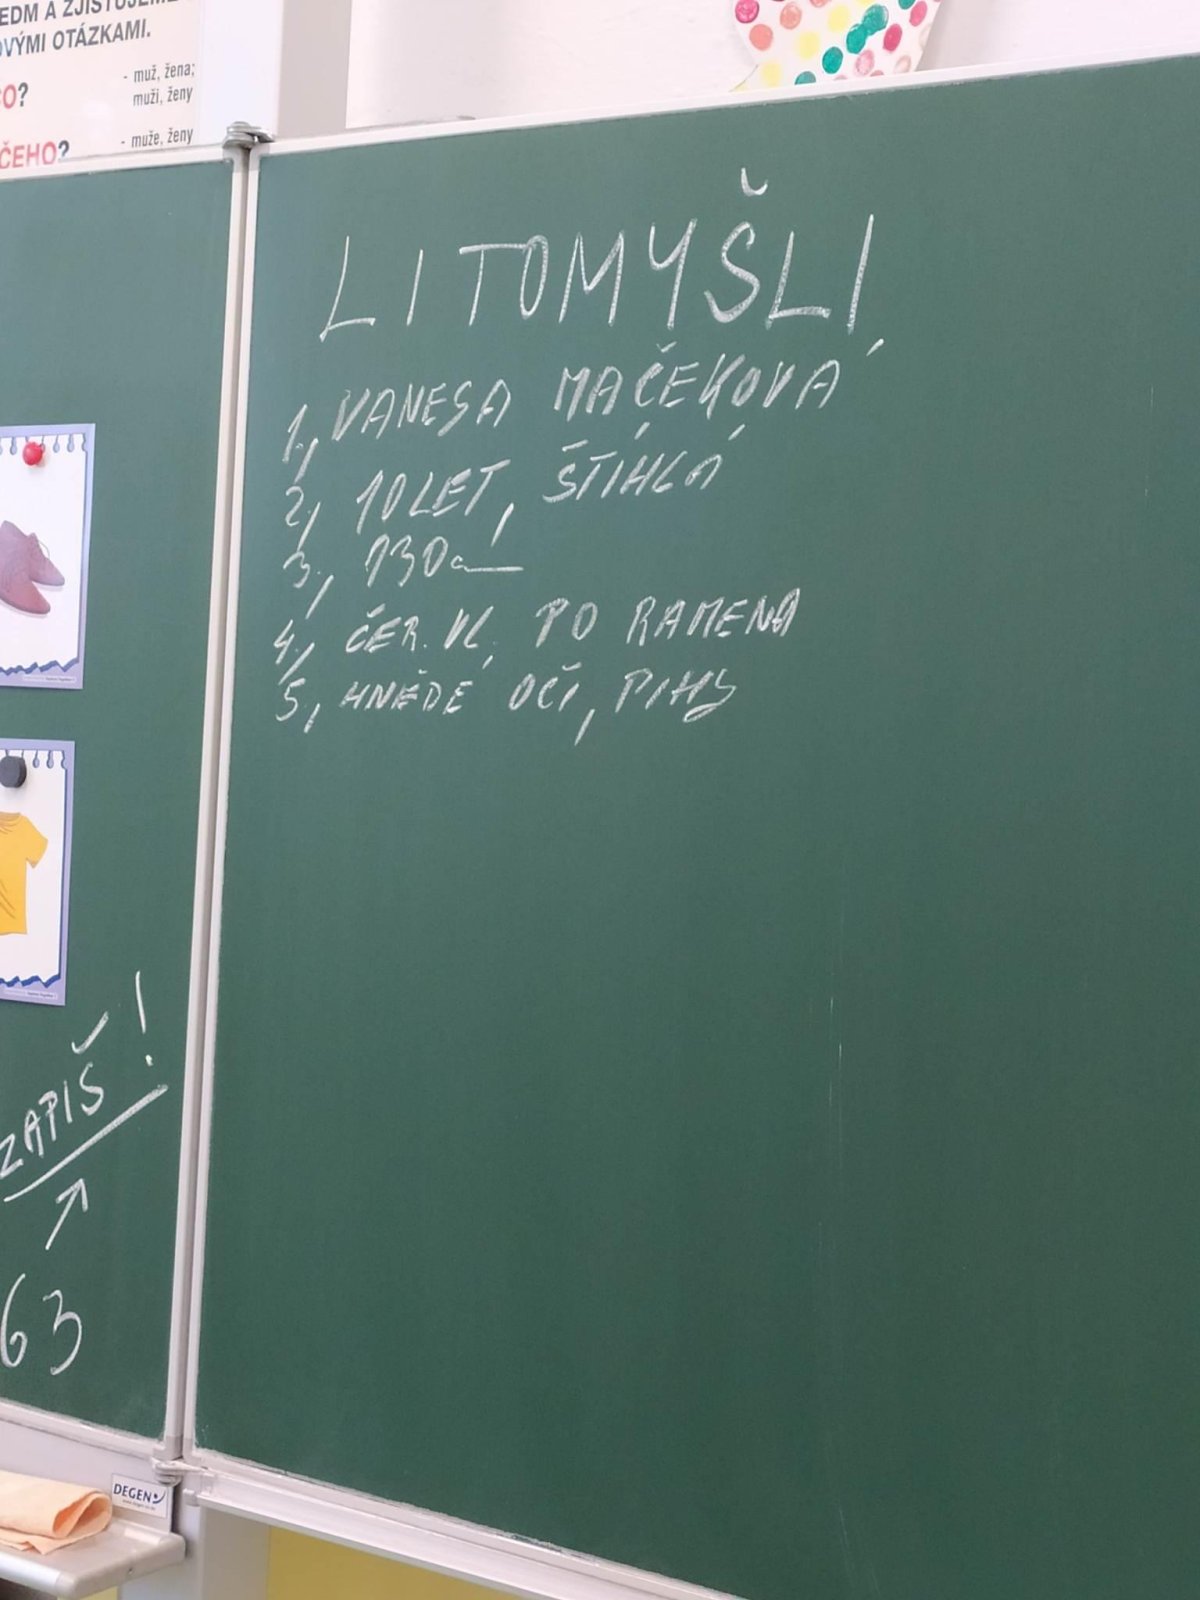 EDM A ZJIŠŤUJEME
OVÝMI OTÁZKAMI.
CO?
- muž, žena;
muži, ženy
ČEHO?
- muže, ženy
LITOMYŠLI
1, VANESA MAČEKOVÁ
2, 10 LET, ŠTÍHLÁ
3, 130 cm
4, ČER. VL. PO RAMENA
5, HNĚDÉ OČI, PIHY
ZAPIŠ!
63
DEGEN